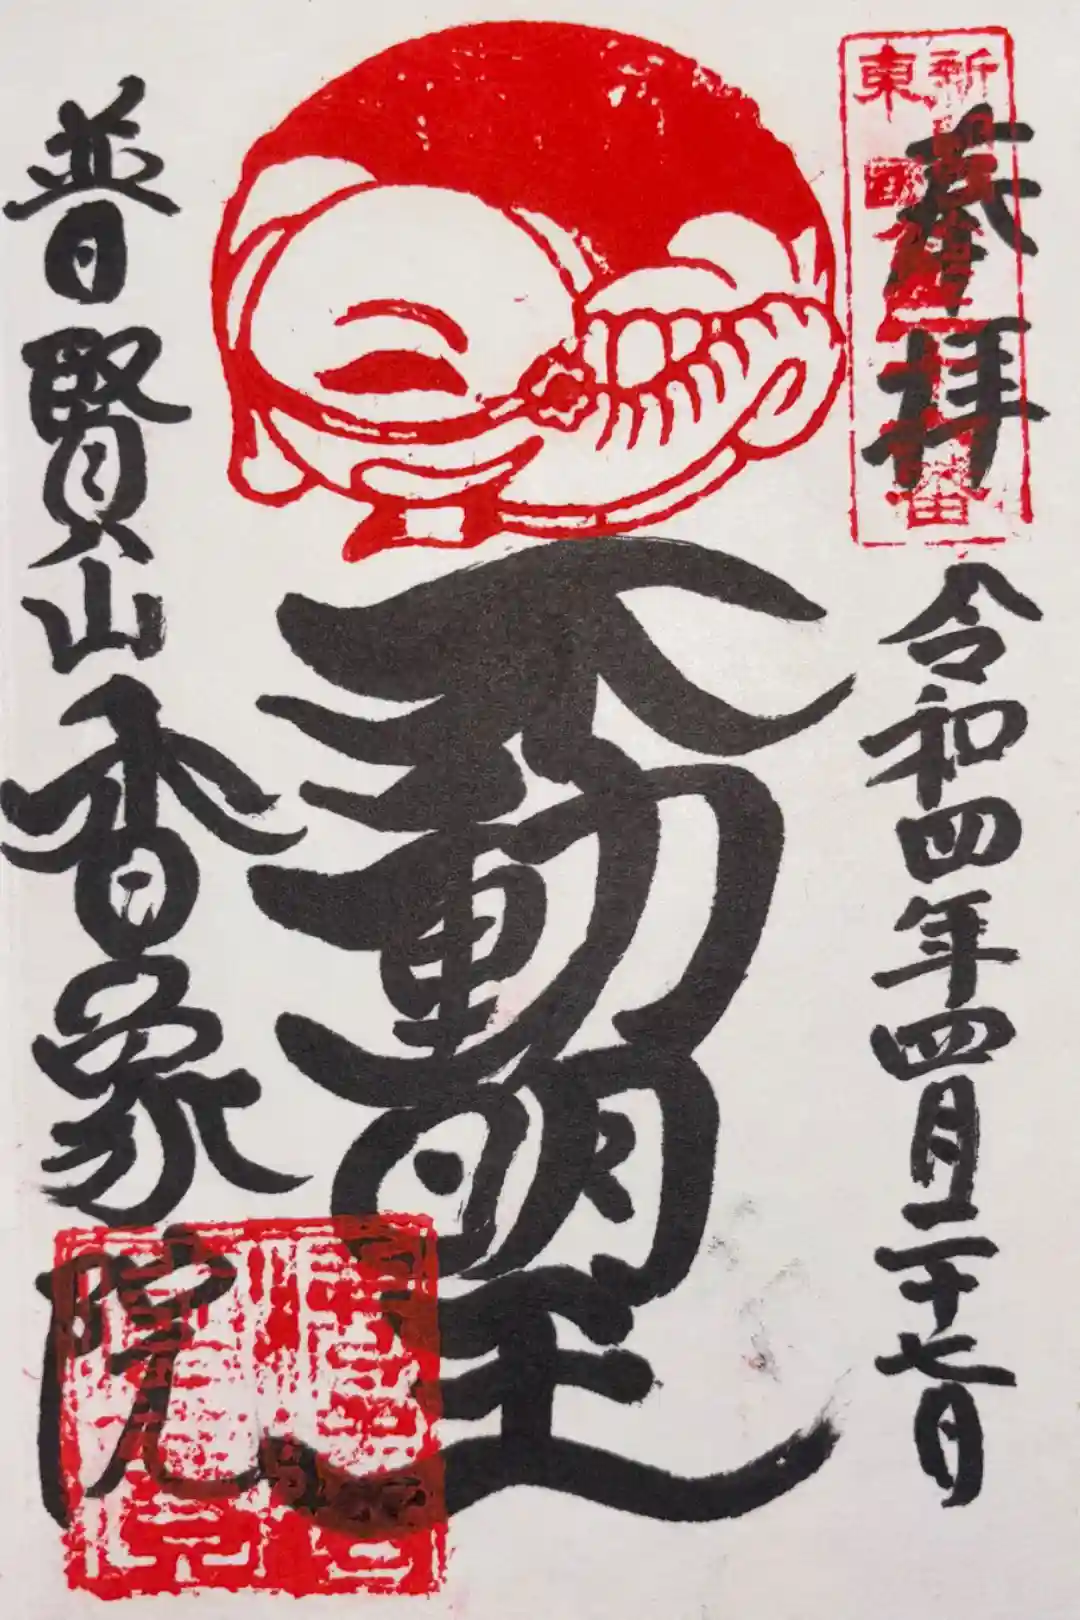 奉拝
令和四年四月二十七日
不動明王
普賢山香象院